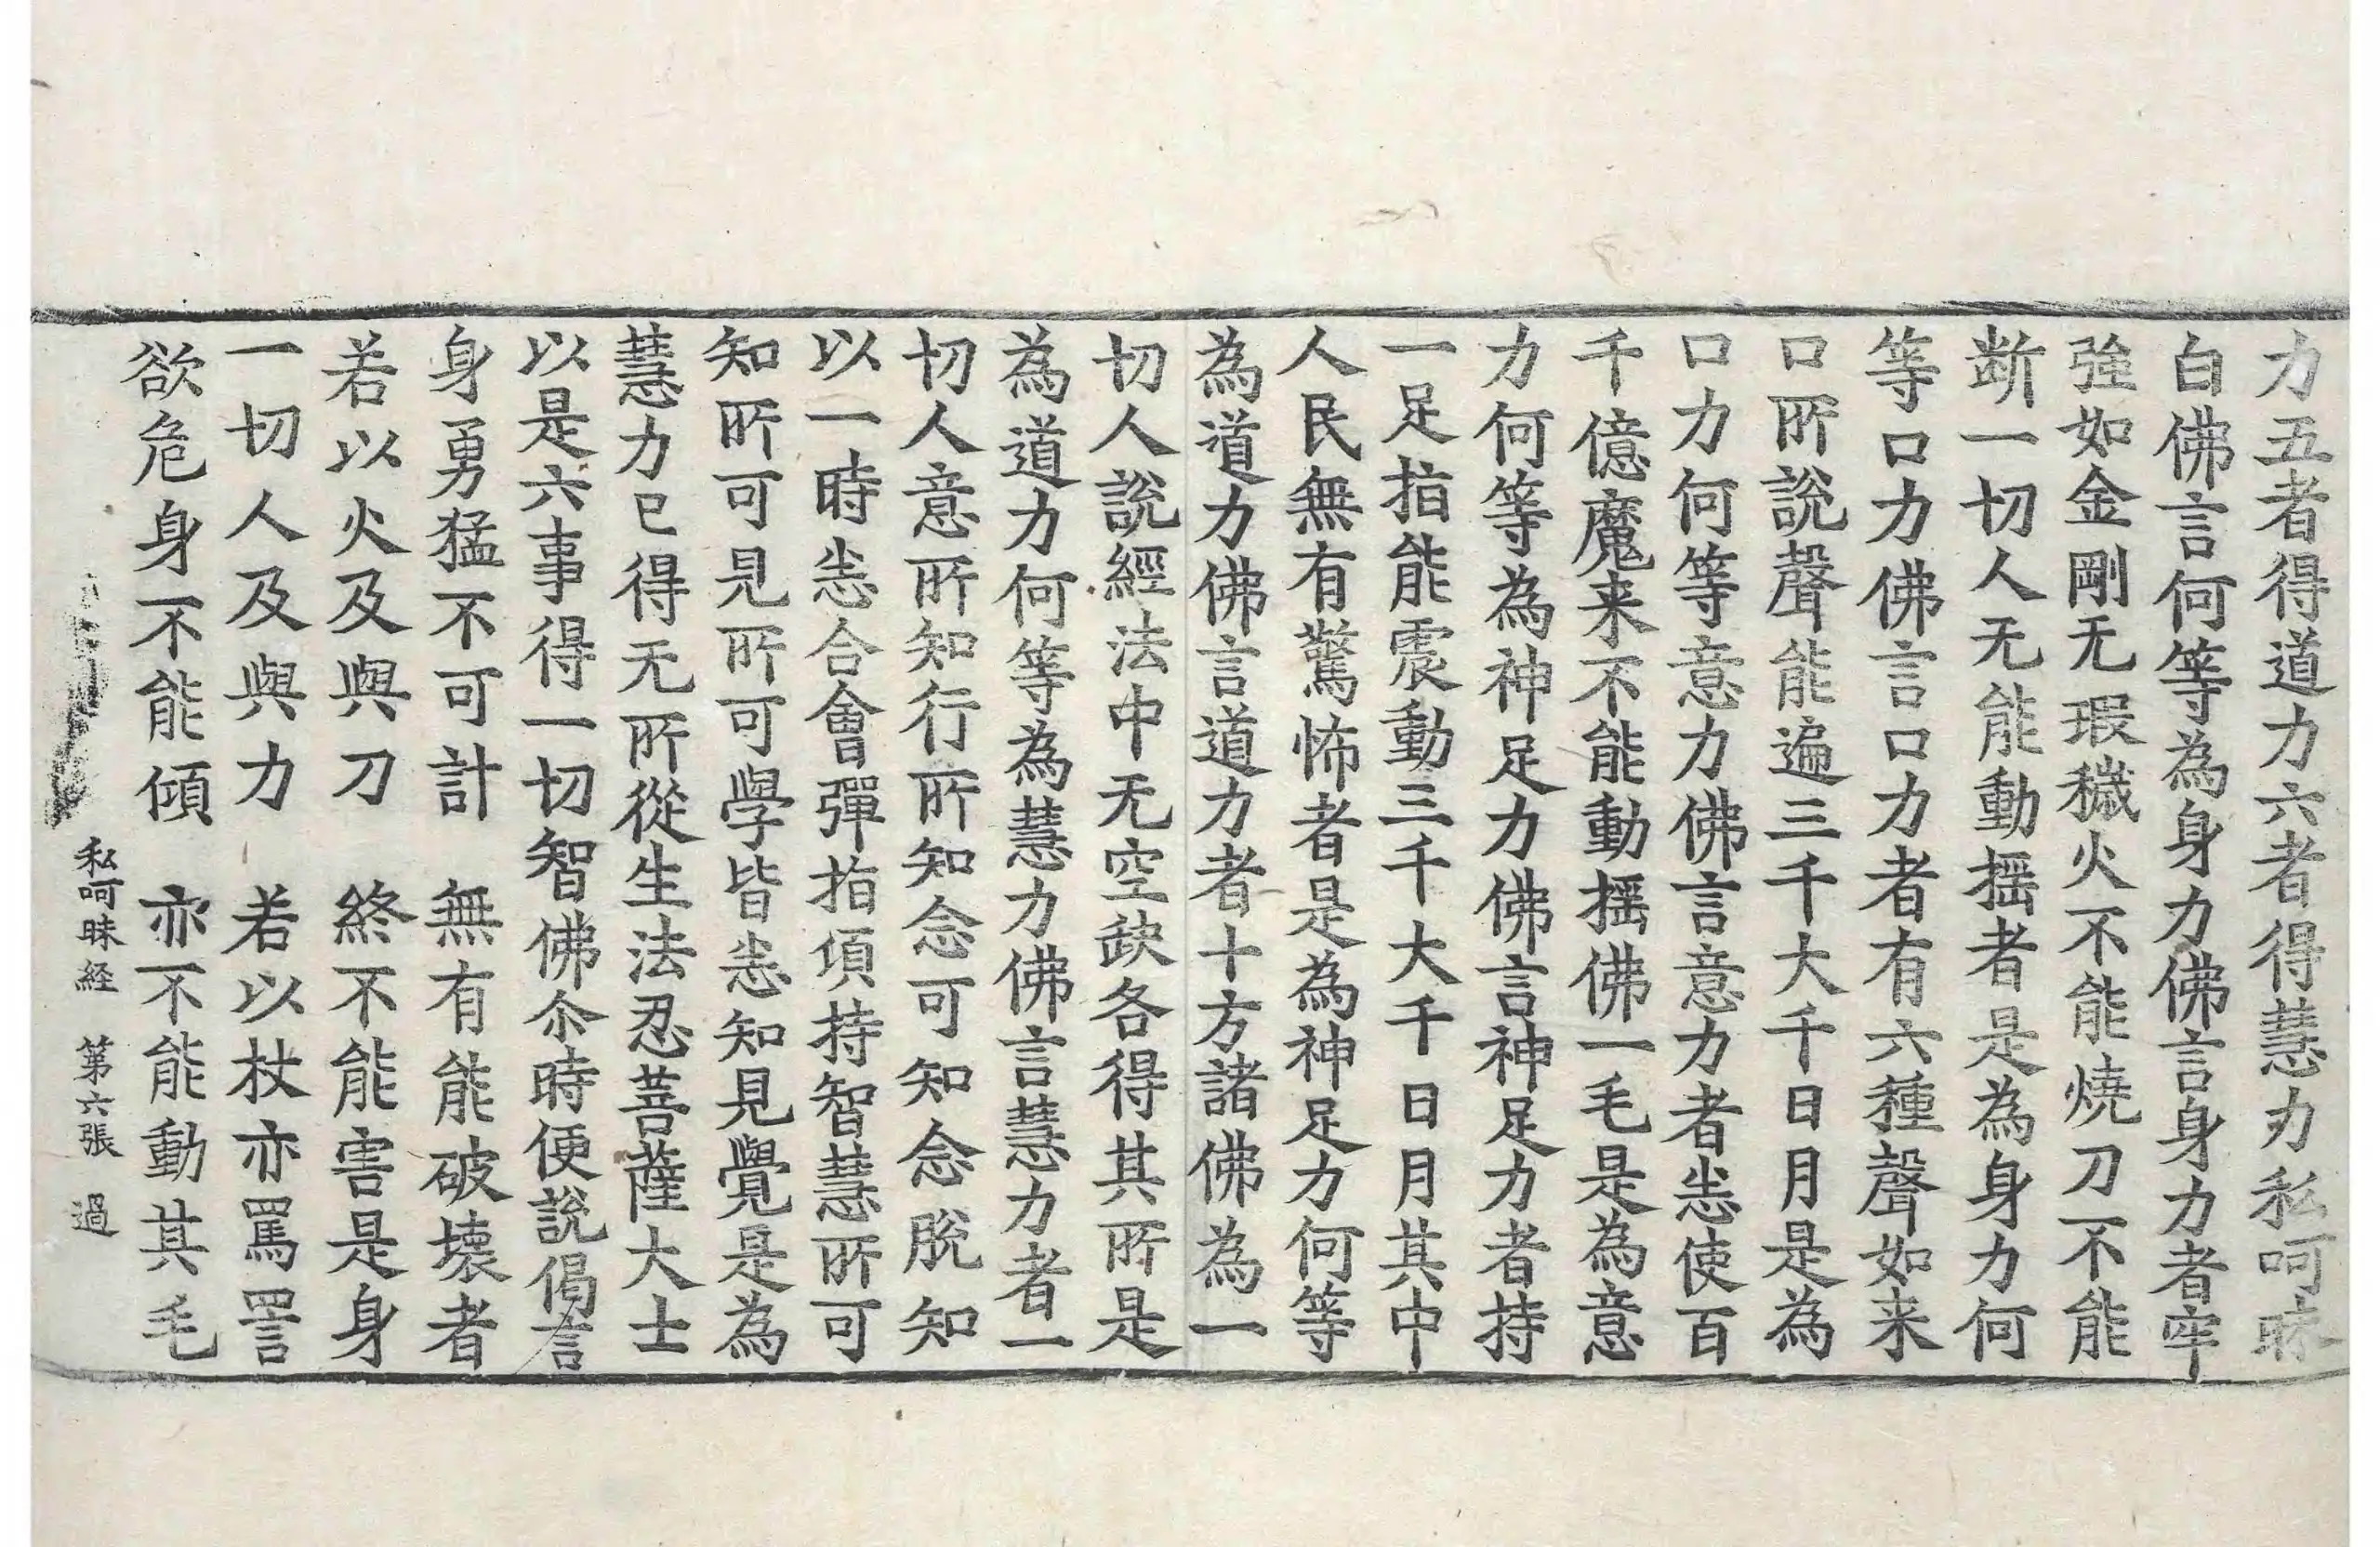 力五者得道力六者得慧力私呵昧
白佛言何等為身力佛言身力者牢
強如金剛无瑕穢火不能燒刀不能
断一切人无能動摇者是為身力何
等口力佛言口力者有六種聲如来
口所說聲能遍三千大千日月是為
口力何等意力佛言意力者恙使百
千億魔来不能動摇佛一毛是為意
力何等為神足力佛言神足力者持
一足指能震動三千大千日月其中
人民無有驚怖者是為神足力何等
為道力佛言道力者十方諸佛為一
切人說經法中无空缺各得其所是
為道力何等為慧力佛言慧力者一
切人意所知行所知念可知念脫知
以一時恙合會彈指頃持智慧所可
知所可見所可學皆恙知見覺是為
慧力已得无所從生法忍菩薩大士
以是六事得一切智佛尒時便說偈言
身勇猛不可計　無有能破壞者
若以火及與刀　終不能害是身
一切人及與力　若以杖亦罵詈
欲危身不能傾　亦不能動其毛
私呵昧経　第六張　過